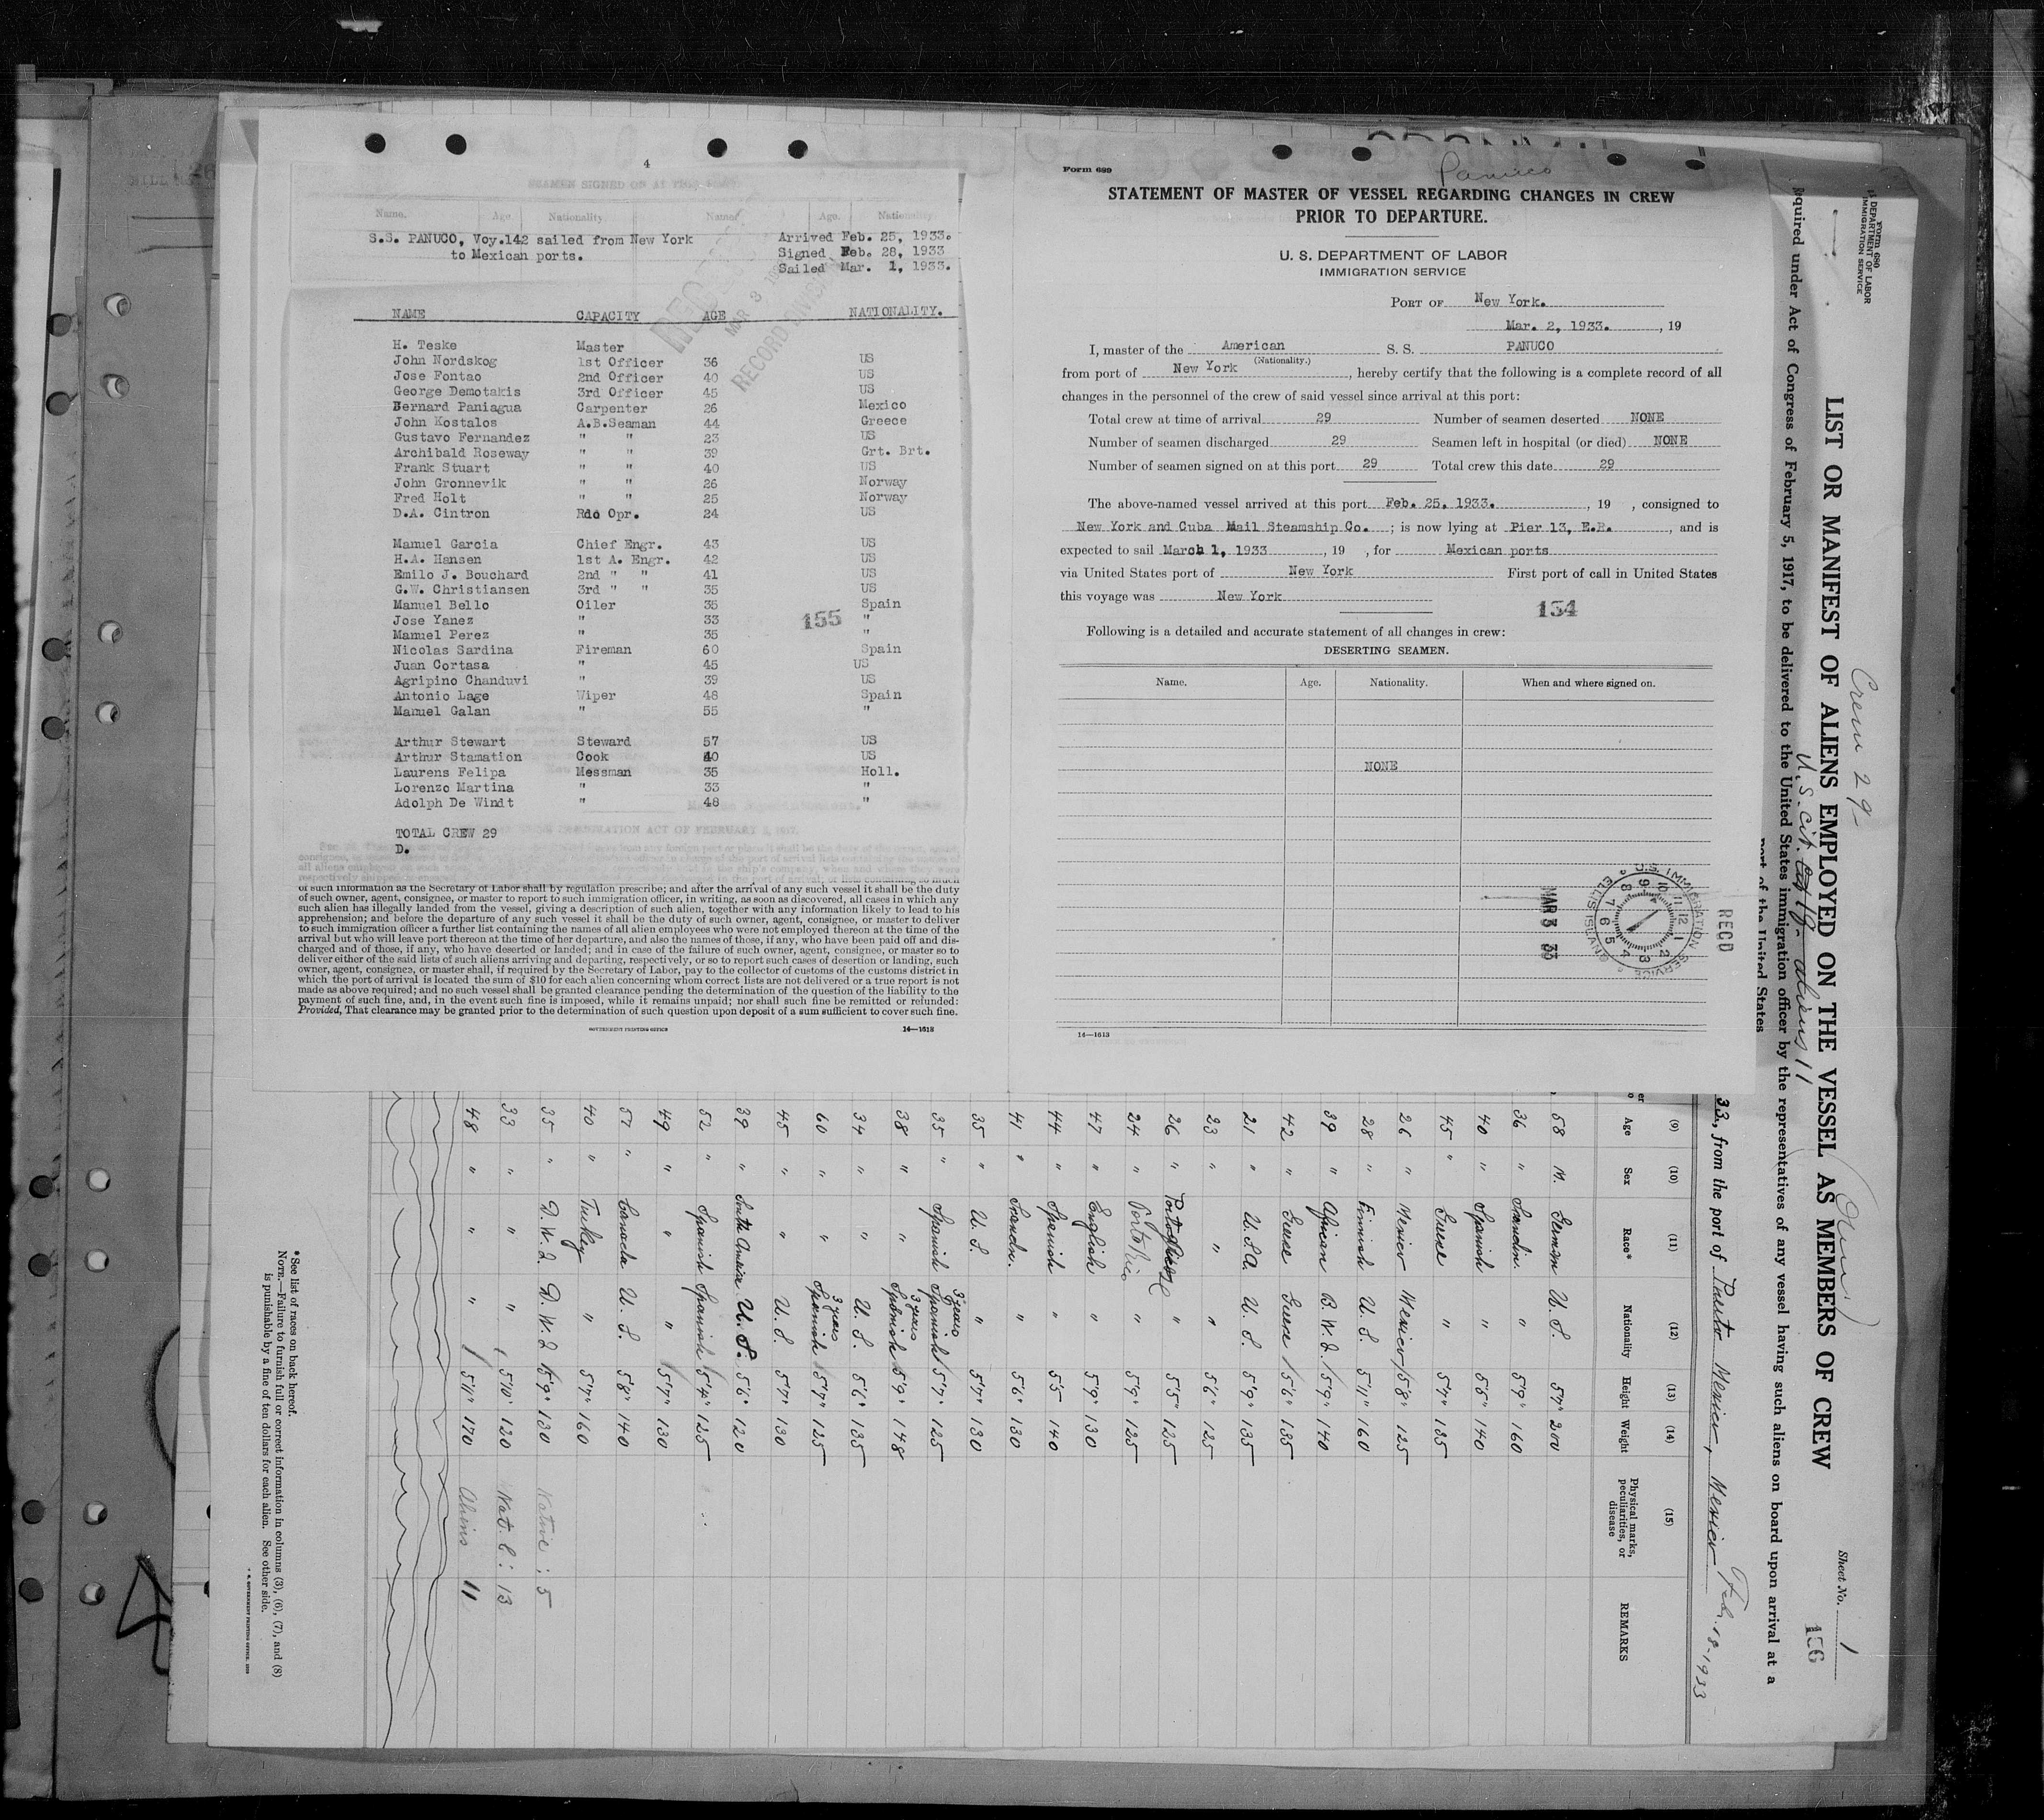 4
S.S. PANUCO, Voy.142 sailed from New York
to Mexican ports.
Arrived Feb. 25, 1933.
Signed Feb. 28, 1933
Sailed Mar. 1, 1933.
NAME CAPACITY AGE NATIONALITY.
H. Teske Master
John Nordskog 1st Officer 36 US
Jose Fontao 2nd Officer 40 US
George Demotakis 3rd Officer 45 US
Bernard Paniagua Carpenter 26 Mexico
John Kostalos A.B.Seaman 44 Greece
Gustavo Fernandez " " 23 US
Archibald Roseway " " 39 Grt. Brt.
Frank Stuart " " 40 US
John Gronnevik " " 26 Norway
Fred Holt " " 25 Norway
D.A. Cintron Rdo Opr. 24 US
Manuel Garcia Chief Engr. 43 US
H.A. Hansen 1st A. Engr. 42 US
Emilo J. Bouchard 2nd " " 41 US
G.W. Christiansen 3rd " " 35 US
Manuel Bello Oiler 35 Spain
Jose Yanez " 33 "
Manuel Perez " 35 "
Nicolas Sardina Fireman 60 Spain
Juan Cortasa " 45 US
Agripino Chanduvi " 39 US
Antonio Lage Wiper 48 Spain
Manuel Galan " 55 "
Arthur Stewart Steward 57 US
Arthur Stamation Cook 40 US
Laurens Felipa Messman 35 Holl.
Lorenzo Martina " 33 "
Adolph De Windt " 48 "
TOTAL CREW 29
D.
155
MAR 3
RECORD
of such information as the Secretary of Labor shall by regulation prescribe; and after the arrival of any such vessel it shall be the duty
of such owner, agent, consignee, or master to report to such immigration officer, in writing, as soon as discovered, all cases in which any
such alien has illegally landed from the vessel, giving a description of such alien, together with any information likely to lead to his
apprehension; and before the departure of any such vessel it shall be the duty of such owner, agent, consignee, or master to deliver
to such immigration officer a further list containing the names of all alien employees who were not employed thereon at the time of the
arrival but who will leave port thereon at the time of her departure, and also the names of those, if any, who have been paid off and dis-
charged and of those, if any, who have deserted or landed; and in case of the failure of such owner, agent, consignee, or master so to
deliver either of the said lists of such aliens arriving and departing, respectively, or so to report such cases of desertion or landing, such
owner, agent, consignee, or master shall, if required by the Secretary of Labor, pay to the collector of customs of the customs district in
which the port of arrival is located the sum of $10 for each alien concerning whom correct lists are not delivered or a true report is not
made as above required; and no such vessel shall be granted clearance pending the determination of the question of the liability to the
payment of such fine, and, in the event such fine is imposed, while it remains unpaid; nor shall such fine be remitted or refunded:
Provided, That clearance may be granted prior to the determination of such question upon deposit of a sum sufficient to cover such fine.
GOVERNMENT PRINTING OFFICE 14—1613
Form 689
Panuco
STATEMENT OF MASTER OF VESSEL REGARDING CHANGES IN CREW
PRIOR TO DEPARTURE.
U. S. DEPARTMENT OF LABOR
IMMIGRATION SERVICE
PORT OF New York.
Mar. 2, 1933. , 19
I, master of the American S. S. PANUCO
(Nationality.)
from port of New York , hereby certify that the following is a complete record of all
changes in the personnel of the crew of said vessel since arrival at this port:
Total crew at time of arrival 29 Number of seamen deserted NONE
Number of seamen discharged 29 Seamen left in hospital (or died) NONE
Number of seamen signed on at this port 29 Total crew this date 29
The above-named vessel arrived at this port Feb. 25, 1933. , 19 , consigned to
New York and Cuba Mail Steamship Co. ; is now lying at Pier 13, E.R. , and is
expected to sail March 1, 1933 , 19 , for Mexican ports
via United States port of New York First port of call in United States
this voyage was New York
154
Following is a detailed and accurate statement of all changes in crew:
DESERTING SEAMEN.
Name. Age. Nationality. When and where signed on.
NONE
14—1613
RECD
U.S. IMMIGRATION SERVICE
ELLIS ISLAND
MAR 3 33
Form 680
U. S. DEPARTMENT OF LABOR
IMMIGRATION SERVICE
Crew 29-
U.S. cit. 18- aliens 11
Sheet No. 1
156
LIST OR MANIFEST OF ALIENS EMPLOYED ON THE VESSEL AS MEMBERS OF CREW
Required under Act of Congress of February 5, 1917, to be delivered to the United States immigration officer by the representatives of any vessel having such aliens on board upon arrival at a
port of the United States
33., from the port of Puerto Mexico, Mexico Feb. 18-1933
(9) (10) (11) (12) (13) (14) (15)
Age Sex Race* Nationality Height Weight Physical marks, peculiarities, or disease REMARKS
58 M. German U. S. 5'7" 200
36 " Scandin. " 5'9" 160
40 " Spanish " 5'5" 140
45 " Greece " 5'7" 135
26 " Mexico Mexico 5'8" 125
28 " Finnish U. S. 5'11" 160
39 " African B.W.I. 5'9" 140
42 " Greece Greece 5'6" 135
21 " U.S.A. U. S. 5'9" 135
23 " " " 5'6" 125
26 " " 5'5" 125
24 " Porto Rico " 5'9" 125
47 " English " 5'9" 130
44 " Spanish " 5'5 140
41 " Scandn. " 5'6" 130
35 " U. S. " 5'7" 130
35 " Spanish 3 years Spanish 5'7" 125
38 " " 3 years Spanish 5'9" 148
34 " " U. S. 5'6" 135
60 " " 3 years Spanish 5'7" 125
45 " " U. S. 5'7" 130
39 " South America U. S. 5'6" 120
52 " Spanish Spanish 5'4" 125
49 " " " 5'7" 130
57 " Canada U. S. 5'8" 140
40 " Turkey " 5'7" 160
35 " D.W.I. D.W.I. 5'9" 130 Native: 5
33 " " " 5'10" 120 Nat. C: 13
48 " " " 5'11" 170 Aliens 11
*See list of races on back hereof.
NOTE.—Failure to furnish full or correct information in columns (3), (6), (7), and (8)
is punishable by a fine of ten dollars for each alien. See other side.